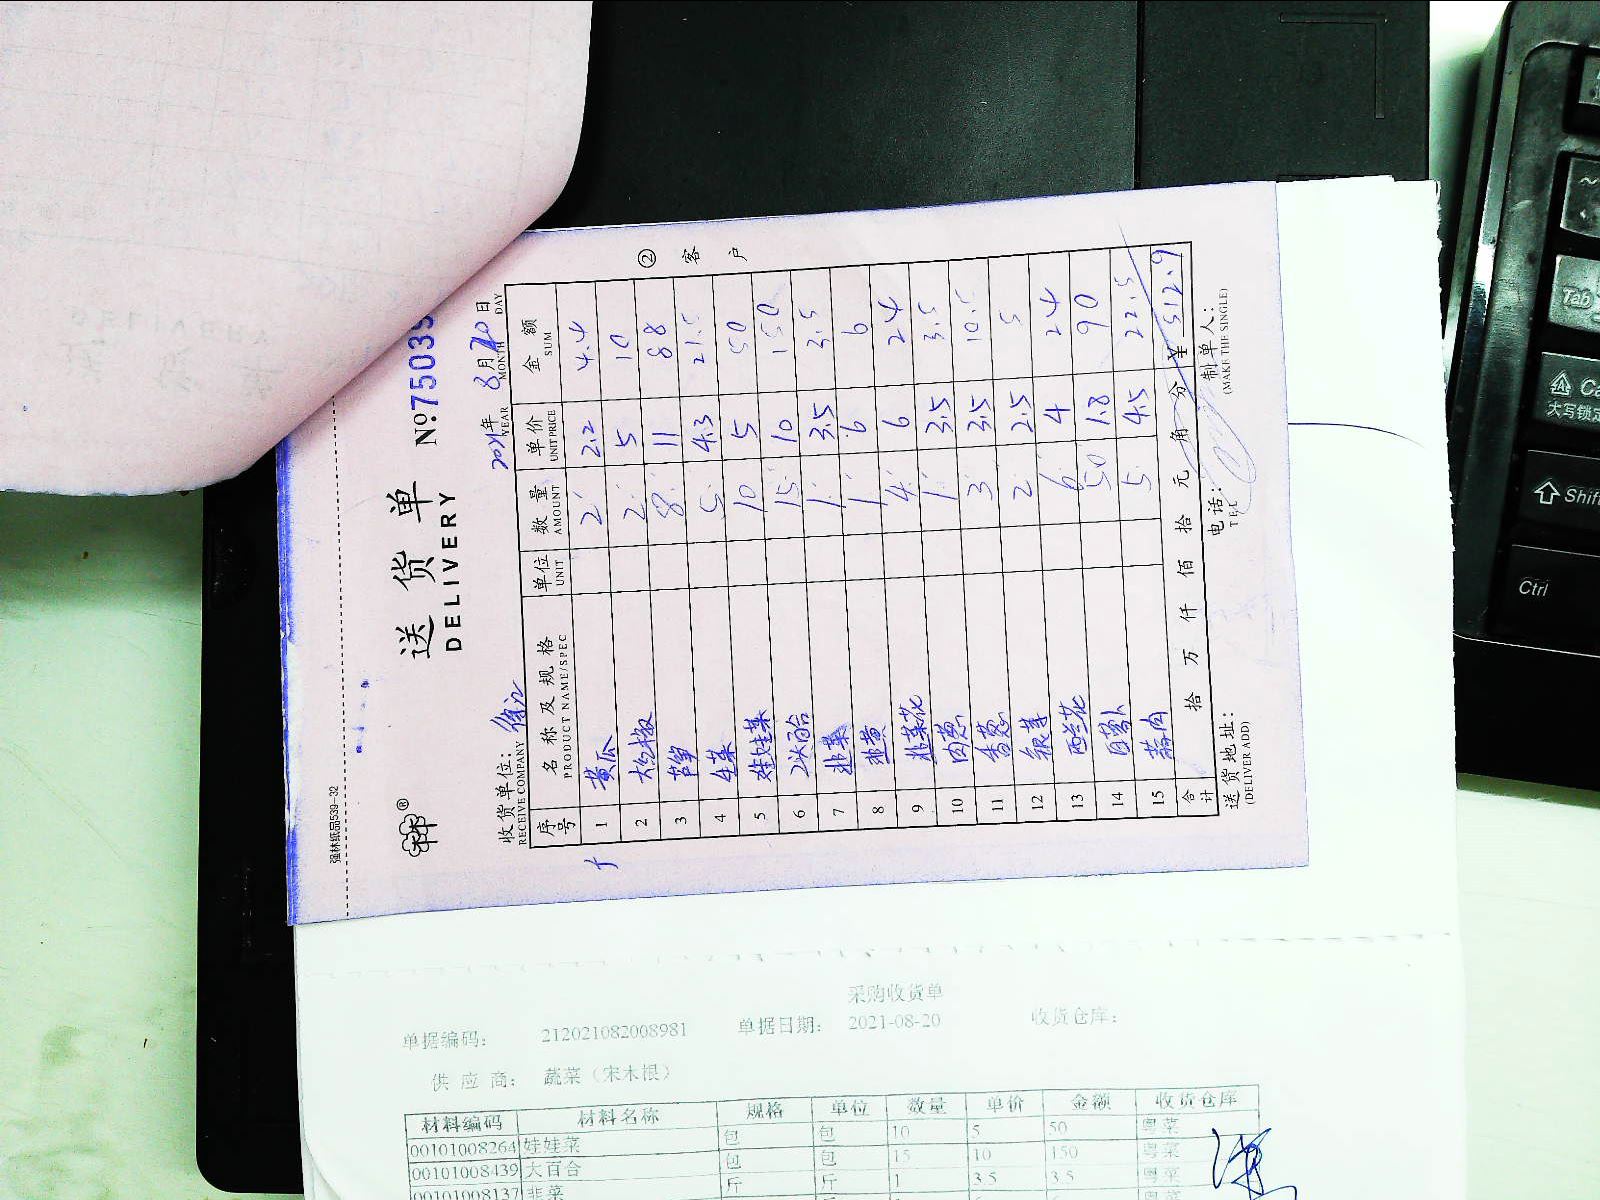 强林纸品539-32
送货单
DELIVERY
№75039
收货单位：
RECEIVE COMPANY
2021年 8月20日
YEAR MONTH DAY
② 客户
序号 名称及规格 单位 数量 单价 金额
PRODUCT NAME/SPEC UNIT AMOUNT UNIT PRICE SUM
1 黄瓜 2 2.2 4.4
2 大红椒 2 5 10
3 芦笋 8 11 88
4 生菜 5 4.3 21.5
5 娃娃菜 10 5 50
6 大百合 15 10 150
7 韭菜 1 3.5 3.5
8 韭黄 1 6 6
9 韭菜花 4 6 24
10 肉葱 1 3.5 3.5
11 香葱 3 3.5 10.5
12 银芽 2 2.5 5
13 西兰花 6 4 24
14 白萝卜 50 1.8 90
15 蒜肉 5 4.5 22.5
合计 拾 万 仟 佰 拾 元 角 分 ¥ 512.9
送货地址： 电话： 制单人：
(DELIVER ADD) TEL (MAKE THE SINGLE)
采购收货单
单据编码： 212021082008981 单据日期： 2021-08-20 收货仓库：
供应商： 蔬菜（宋木根）
材料编码 材料名称 规格 单位 数量 单价 金额 收货仓库
00101008264 娃娃菜 包 包 10 5 50 粤菜
00101008439 大百合 包 包 15 10 150 粤菜
00101008137 韭菜 斤 斤 1 3.5 3.5 粤菜
~
Tab
Ca
大写锁定
Shif
Ctrl